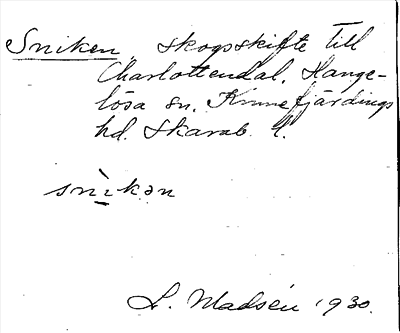 Sniken, skogsskifte till
Charlottendal, Hange-
lösa sn. Kinnefjärdings
hd. Skarab. l.
snìkən
L. Madsén 1930.